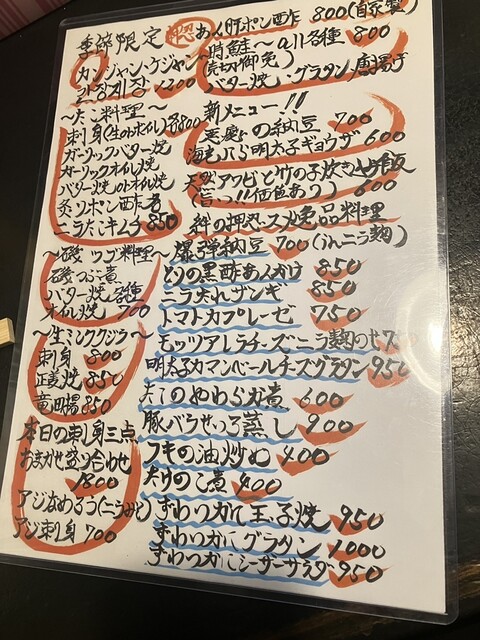 季節限定
あん肝ポン酢 800(自家製)
カンジャンケジャン
간장게장 1200
時鮭〜all各種 800
(売切御免)
バター焼・グラタン・唐揚げ
〜たこ料理〜
刺身(生のオイル)各800
ガーリックバター焼
ガーリックオイル焼
バター焼 オイル焼
炙りポン酢
ニラたこキムチ 850
新メニュー!!
の納豆 700
海老ニラ明太子ギョウザ 600
天然アワビと竹の子炊き
(旨っ!!価値あり) 600
絆の押忍スメ逸品料理
〜磯ツブ料理〜
磯つぶ煮
バター焼 各種
オイル焼 700
〜生ミンククジラ〜
刺身 800
焼 850
竜田揚 850
本日の刺身三点
おまかせ盛り合わせ
1800
アジなめろう(ニラみそ)
アジ刺身 700
爆弾納豆 700(inニラ麹)
とりの黒酢あんかけ 850
ニラだれザンギ 850
トマトカプレーゼ 750
モッツアレラチーズニラ麹のせ
明太子カマンベールチーズグラタン 950
たこのやわらか煮 600
豚バラせいろ蒸し 900
フキの油炒め 400
たけのこ煮 400
ずわいがに玉子焼 950
ずわいがにグラタン 1000
ずわいがにシーザーサラダ 950